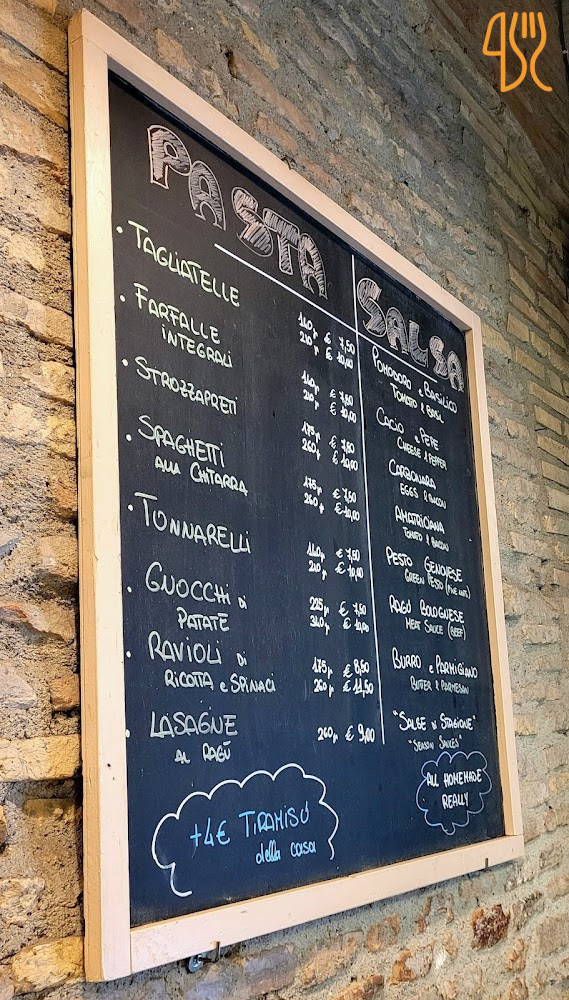 PASTA
• TAGLIATELLE
140gr € 7,50
210gr € 10,00
• FARFALLE
INTEGRALI
140gr € 7,50
210gr € 10,00
• STROZZAPRETI
175gr € 7,50
260gr € 10,00
• SPAGHETTI
ALLA CHITARRA
175gr € 7,50
260gr € 10,00
• TONNARELLI
140gr € 7,50
210gr € 10,00
• GNOCCHI DI
PATATE
225gr € 7,50
340gr € 10,00
• RAVIOLI DI
RICOTTA e SPINACI
175gr € 8,50
260gr € 11,50
• LASAGNE
AL RAGÙ
260gr € 9,00
+4€ TIRAMISÙ
della casa
SALSA
POMODORO e BASILICO
TOMATO & BASIL
CACIO e PEPE
CHEESE & PEPPER
CARBONARA
EGGS & BACON
AMATRICIANA
TOMATO & BACON
PESTO GENOVESE
GREEN PESTO (PINE NUTS)
RAGÙ BOLOGNESE
MEAT SAUCE (BEEF)
BURRO e PARMIGIANO
BUTTER & PARMESAN
"SALSE DI STAGIONE"
"SEASON SAUCES"
ALL HOMEMADE
REALLY